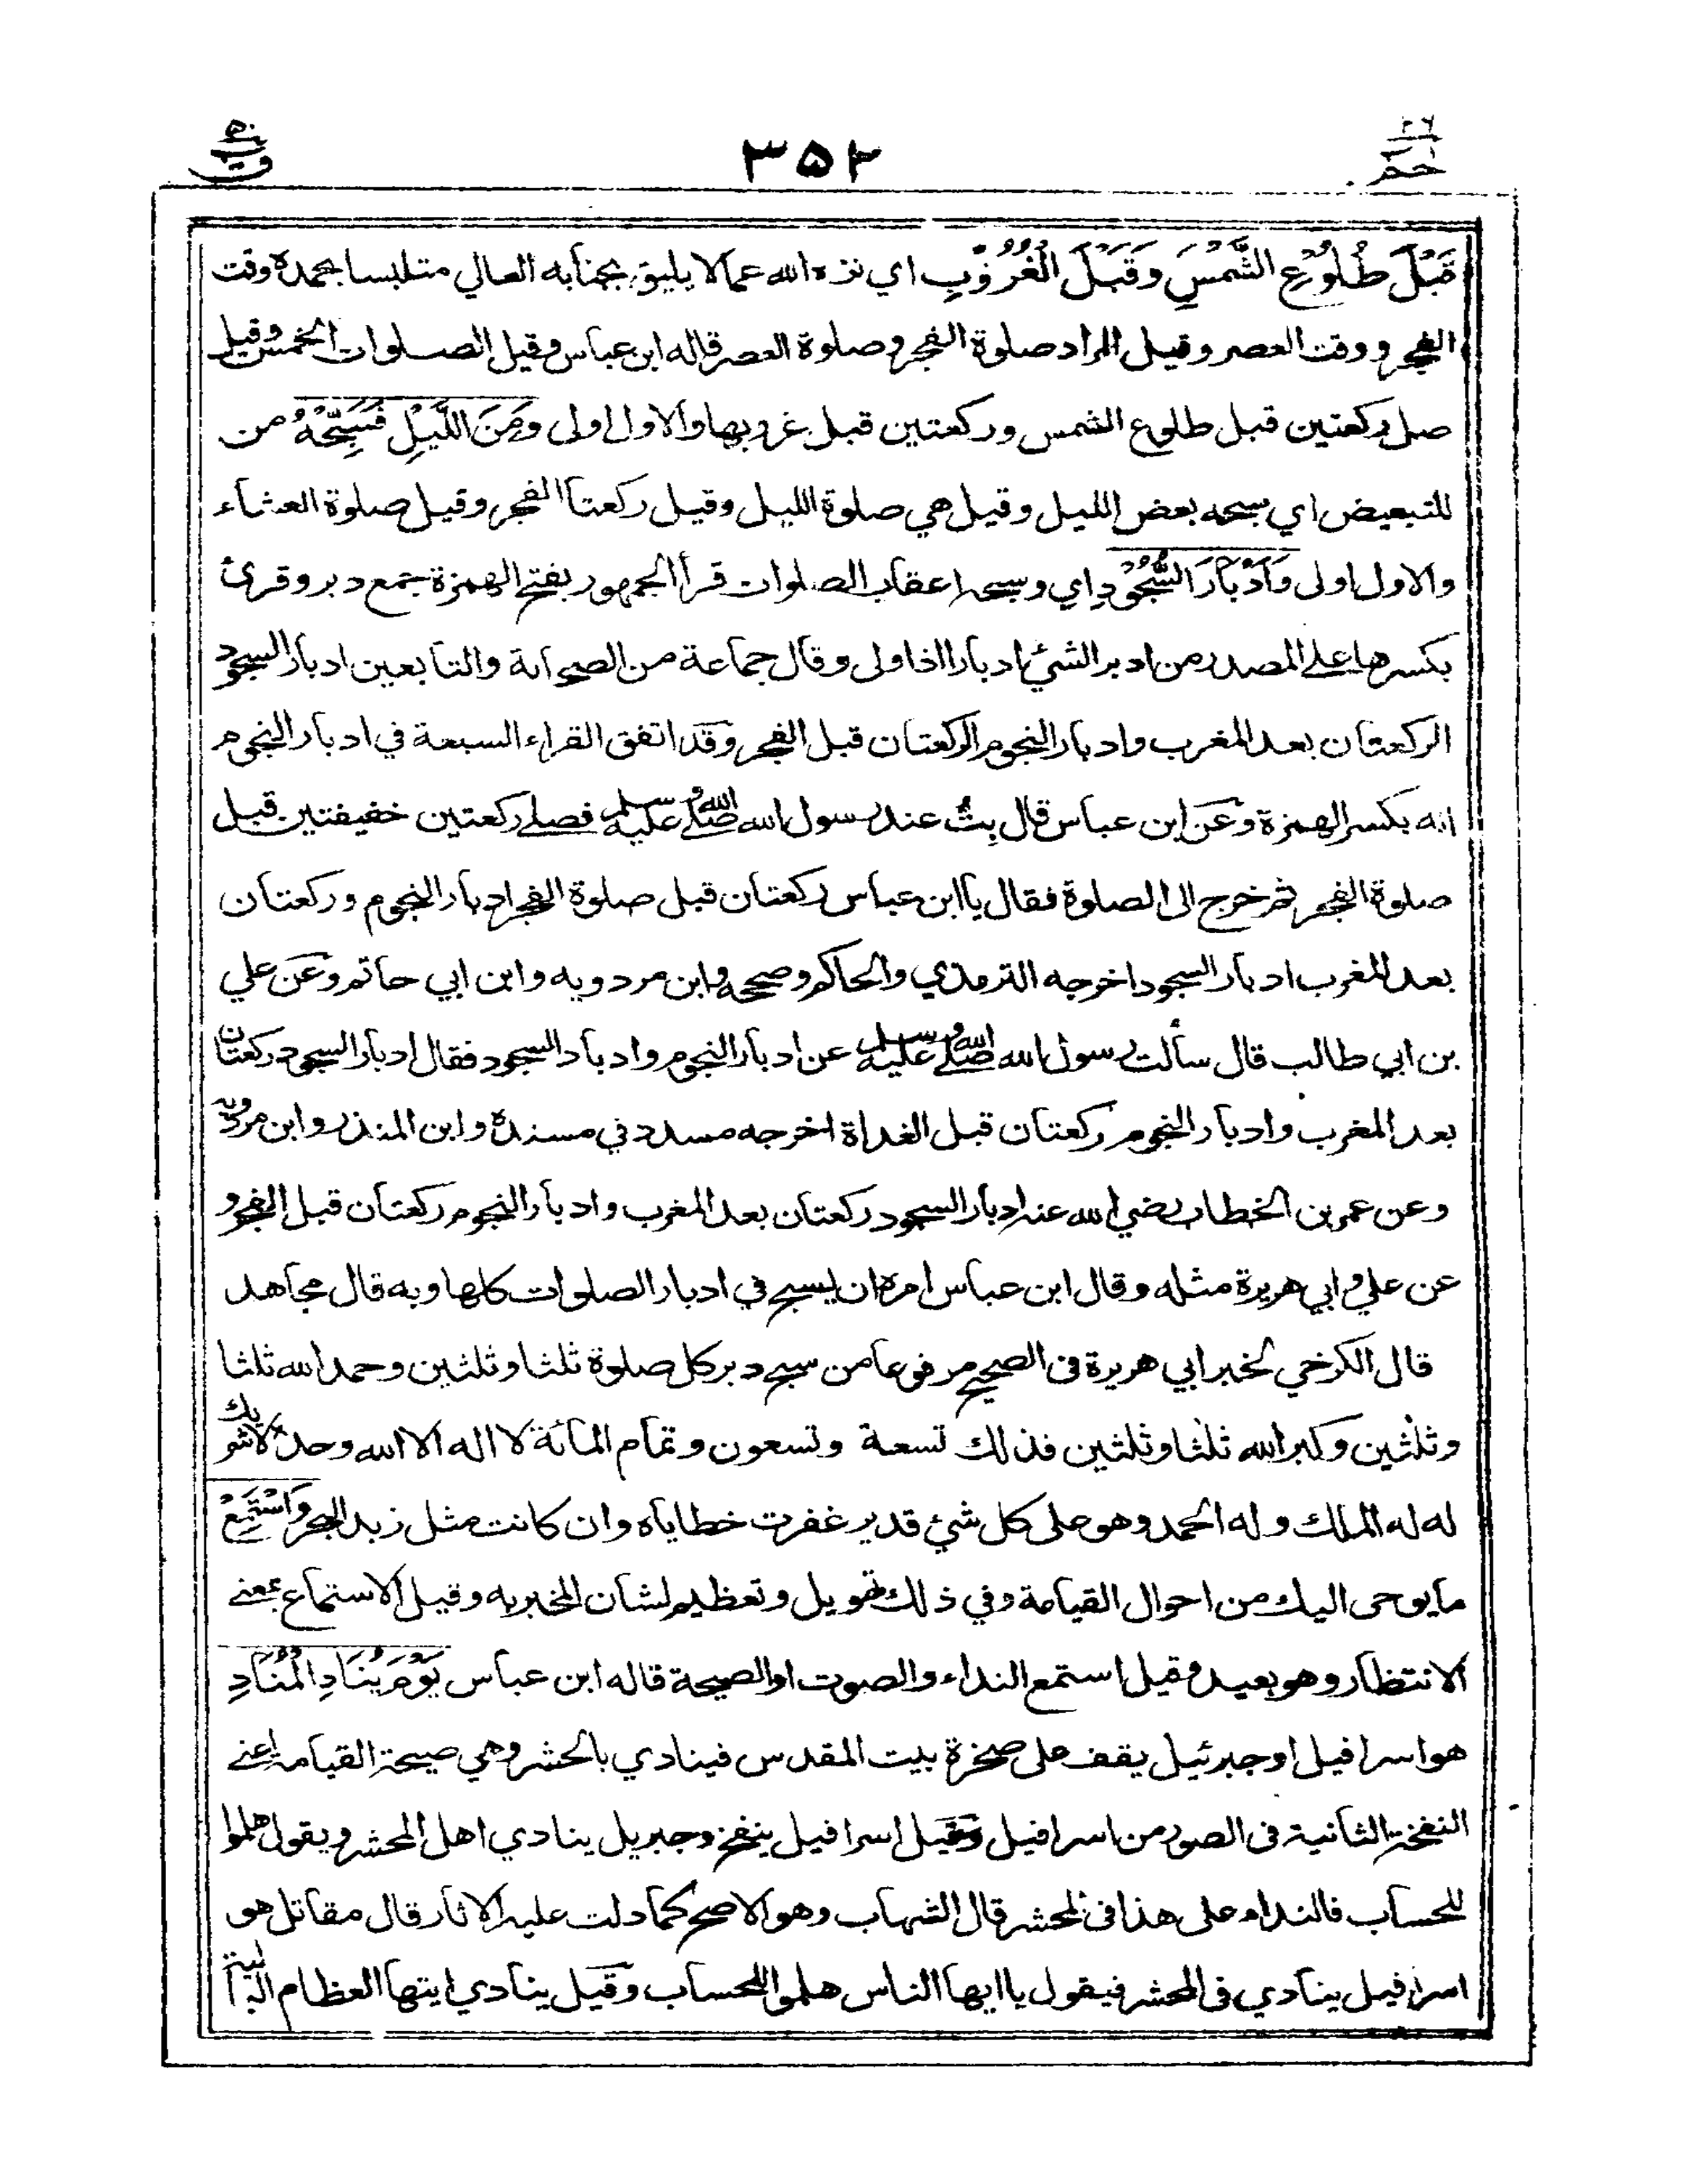 ٢٦ حم
٣٥٢
٥٠ ق
قَبْلَ طُلُوْعِ الشَّمْسِ وَقَبْلَ الْغُرُوْبِ اي نزه الله عما لا يليق بجنابه العالي متلبسا بحمده وقت
الفجر ووقت العصر وقيل المراد صلوة الفجر وصلوة العصر قاله ابن عباس وقيل الصلوات الخمس وقيل
صل ركعتين قبل طلوع الشمس وركعتين قبل غروبها والاول اولى وَمِنَ اللَّيْلِ فَسَبِّحْهُ من
للتبعيض اي سبحه بعض الليل وقيل هي صلوة الليل وقيل ركعتا الفجر وقيل صلوة العشاء
والاول اولى وَاَدْبَارَ السُّجُوْدِ اي وسبحه اعقاب الصلوات قرأ الجمهور بفتح الهمزة جمع دبر وقرئ
بكسرها على المصدر من ادبر الشئ ادبارا اذا ولى وقال جماعة من الصحابة والتابعين ادبار السجود
الركعتان بعد المغرب وادبار النجوم الركعتان قبل الفجر وقد اتفق القراء السبعة في ادبار النجوم
انه بكسر الهمزة وعن ابن عباس قال بِتُّ عند رسول الله صلى الله عليه وسلم فصلى ركعتين خفيفتين قبل
صلوة الفجر ثم خرج الى الصلوة فقال يا ابن عباس ركعتان قبل صلوة الفجر ادبار النجوم وركعتان
بعد المغرب ادبار السجود اخرجه الترمذي والحاكم وصححه وابن مردويه وابن ابي حاتم وعن علي
بن ابي طالب قال سألت رسول الله صلى الله عليه وسلم عن ادبار النجوم وادبار السجود فقال ادبار السجود ركعتان
بعد المغرب وادبار النجوم ركعتان قبل الغداة اخرجه مسدد في مسنده وابن المنذر وابن مردويه
وعن عمر بن الخطاب رضي الله عنه ادبار السجود ركعتان بعد المغرب وادبار النجوم ركعتان قبل الفجر و
عن علي وابي هريرة مثله وقال ابن عباس امره ان يسبح في ادبار الصلوات كلها وبه قال مجاهد
قال الكرخي لخبر ابي هريرة فى الصحيح مرفوعا من سبح دبر كل صلوة ثلثا وثلثين وحمد الله ثلثا
وثلثين وكبر الله ثلثا وثلثين فذلك تسعة وتسعون وتمام المائة لا اله الا الله وحده لا شريك
له له الملك وله الحمد وهو على كل شئ قدير غفرت خطاياه وان كانت مثل زبد البحر وَاسْتَمِعْ
ما يوحى اليك من احوال القيامة وفي ذلك تهويل وتعظيم لشان المخبر به وقيل الاستماع بمعنى
الانتظار وهو بعيد وقيل استمع النداء والصوت او الصيحة قاله ابن عباس يَوْمَ يُنَادِ الْمُنَادِ
هو اسرافيل او جبرئيل يقف على صخرة بيت المقدس فينادي بالحشر وهي صيحة القيامة اعني
النفخة الثانية فى الصور من اسرافيل وقيل اسرافيل ينفخ وجبريل ينادي اهل المحشر ويقول هلموا
للحساب فالنداء على هذا فى المحشر قال الشهاب وهو الاصح كما دلت عليه الاثار قال مقاتل هو
اسرافيل ينادي فى المحشر فيقول يا ايها الناس هلموا للحساب وقيل ينادي ايتها العظام البالية